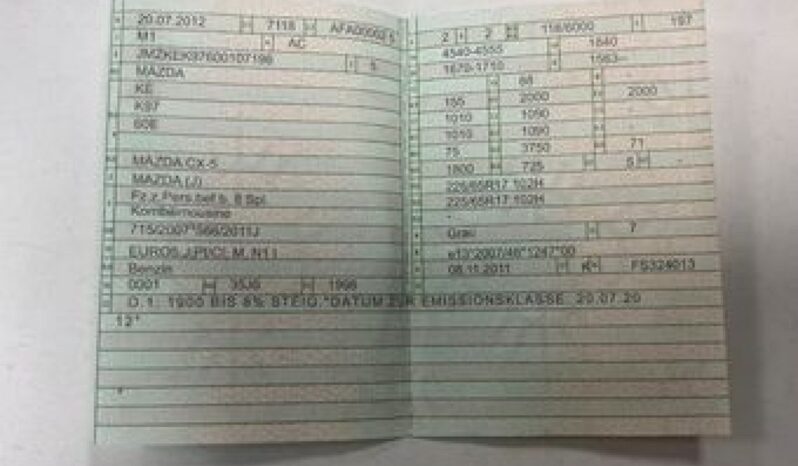 20.07.2012 7118
2 2 118/6000 197
M1 AC
1840
5
4540-4555
MAZDA
1670-1710
KE
68
K97
155 2000 2000
60E
1010 1090
1010 1090
75 3750 71
MAZDA CX-5
1800 725 5
MAZDA (J)
225/65R17 102H
Fz.z.Pers.bef.b. 8 Spl.
225/65R17 102H
Kombilimousine
-
715/2007*566/2011J
Grau 7
EURO5
e13*2007/46*1247*00
Benzin
08.11.2011 K FS324013
0001 1998
O.1: 1900 BIS 8% STEIG.*DATUM ZUR EMISSIONSKLASSE: 20.07.20
12*
*